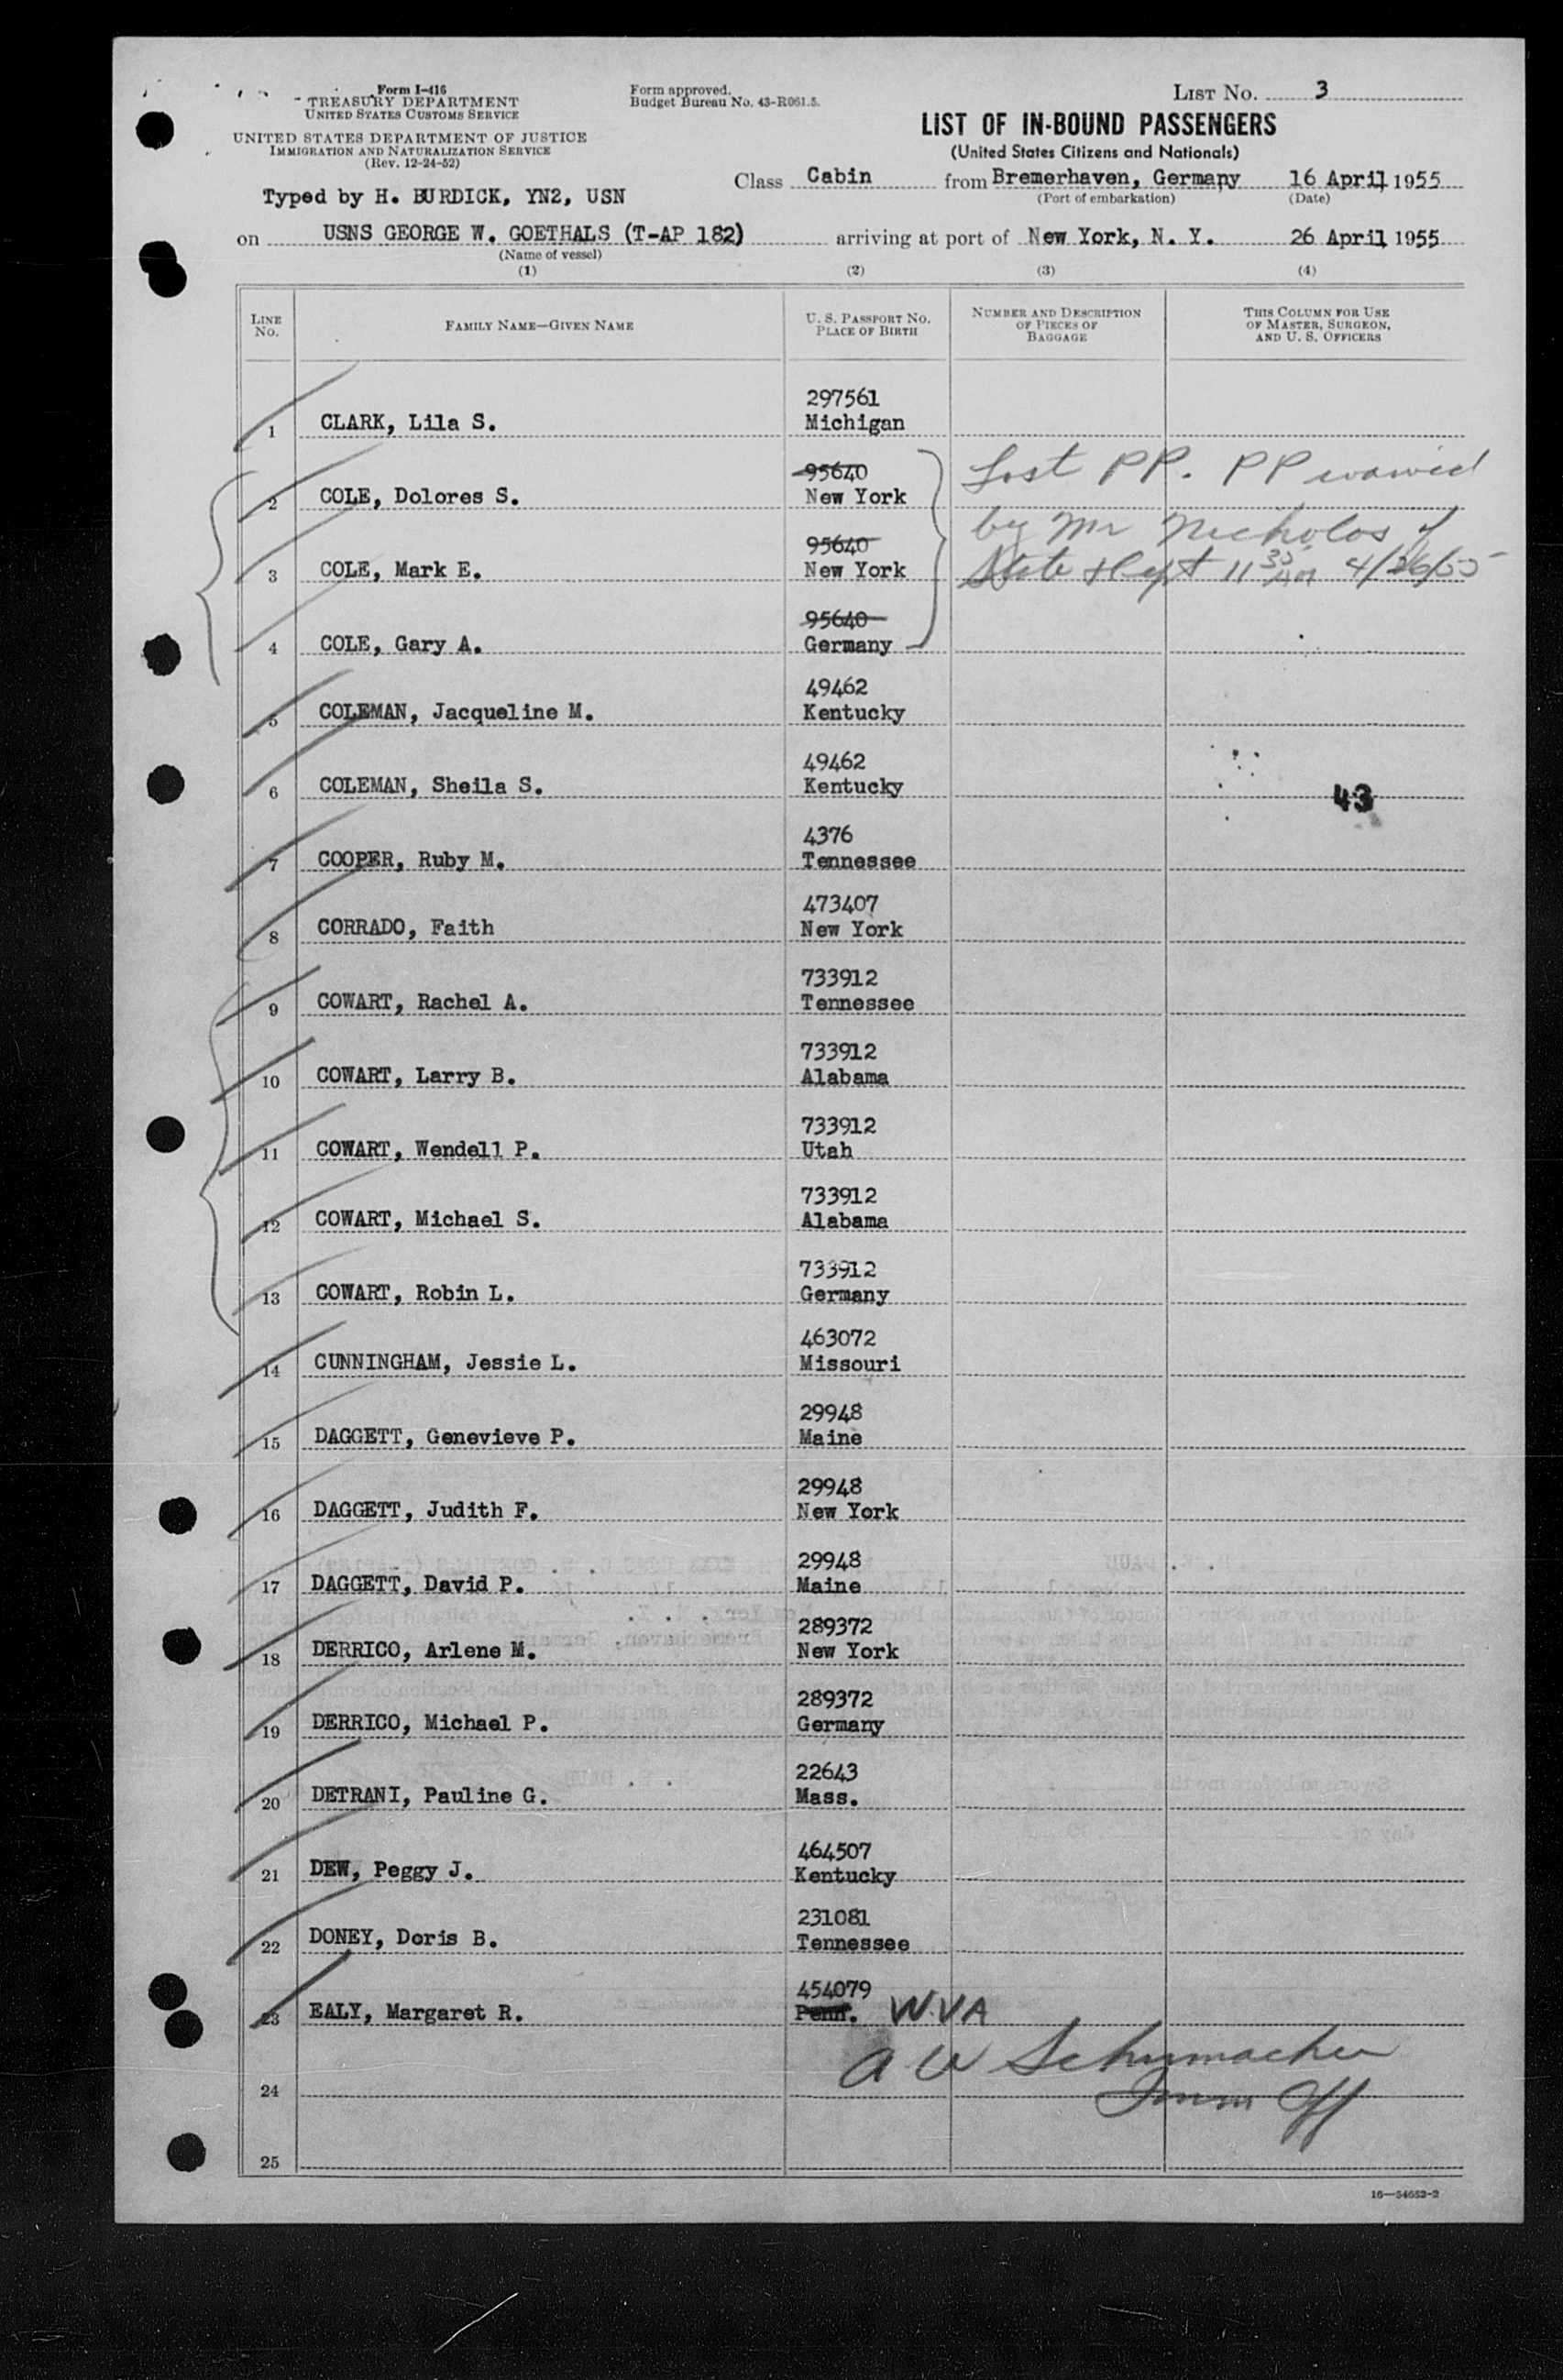 Form I-416
TREASURY DEPARTMENT
UNITED STATES CUSTOMS SERVICE
UNITED STATES DEPARTMENT OF JUSTICE
IMMIGRATION AND NATURALIZATION SERVICE
(Rev. 12-24-52)
Form approved.
Budget Bureau No. 43-R061.5.
LIST NO. 3
LIST OF IN-BOUND PASSENGERS
(United States Citizens and Nationals)
Typed by H. BURDICK, YN2, USN
Class Cabin from Bremerhaven, Germany 16 April 1955
(Port of embarkation) (Date)
on USNS GEORGE W. GOETHALS (T-AP 182) arriving at port of New York, N. Y. 26 April 1955
(Name of vessel)
(1) (2) (3) (4)
LINE NO. FAMILY NAME—GIVEN NAME U. S. PASSPORT NO. PLACE OF BIRTH NUMBER AND DESCRIPTION OF PIECES OF BAGGAGE THIS COLUMN FOR USE OF MASTER, SURGEON, AND U. S. OFFICERS
297561
1 CLARK, Lila S. Michigan
95640 Lost PP. PP waived
2 COLE, Dolores S. New York
95640 by Mr Nicholas of
3 COLE, Mark E. New York State Dept 11 35 AM 4/26/55
95640
4 COLE, Gary A. Germany
49462
5 COLEMAN, Jacqueline M. Kentucky
49462
6 COLEMAN, Sheila S. Kentucky 43
4376
7 COOPER, Ruby M. Tennessee
473407
8 CORRADO, Faith New York
733912
9 COWART, Rachel A. Tennessee
733912
10 COWART, Larry B. Alabama
733912
11 COWART, Wendell P. Utah
733912
12 COWART, Michael S. Alabama
733912
13 COWART, Robin L. Germany
463072
14 CUNNINGHAM, Jessie L. Missouri
29948
15 DAGGETT, Genevieve P. Maine
29948
16 DAGGETT, Judith F. New York
29948
17 DAGGETT, David P. Maine
289372
18 DERRICO, Arlene M. New York
289372
19 DERRICO, Michael P. Germany
22643
20 DETRANI, Pauline G. Mass.
464507
21 DEW, Peggy J. Kentucky
231081
22 DONEY, Doris B. Tennessee
454079
23 EALY, Margaret R. Penn. W.VA
A W Schumacher
24 Imm Off
25
16—54652-2